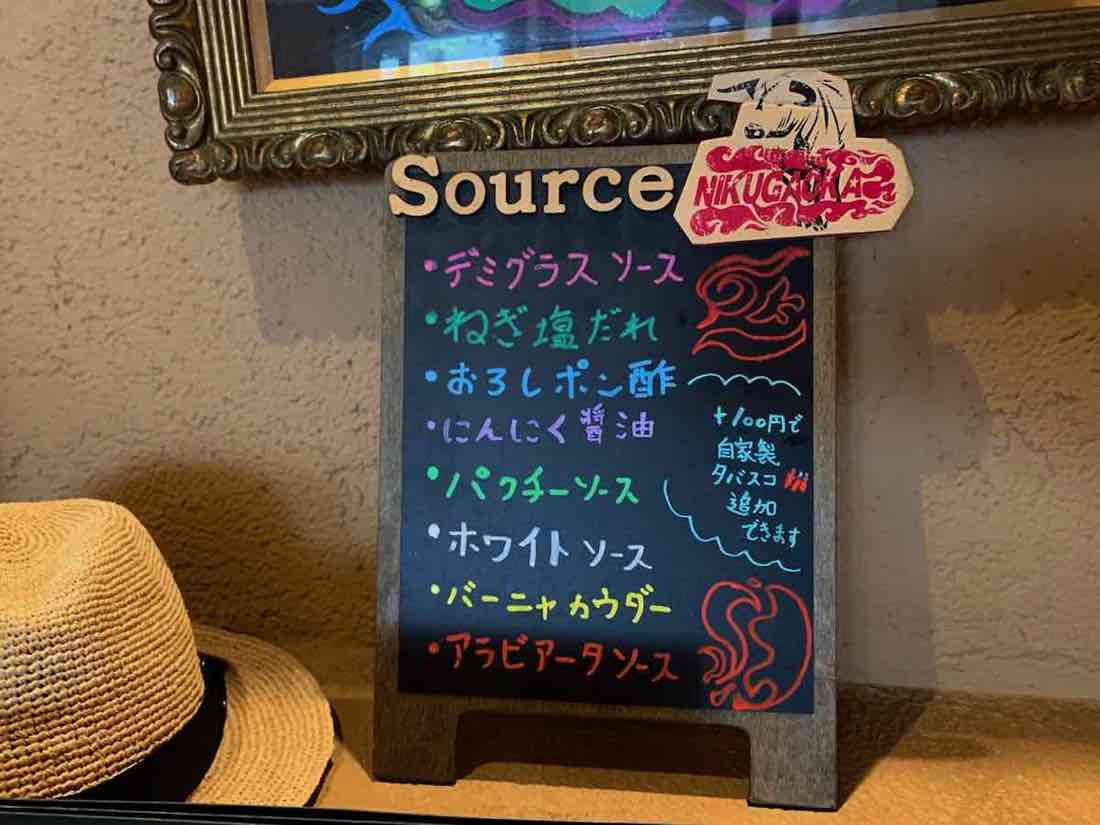 Source
NIKUGAOKA
・デミグラスソース
・ねぎ塩だれ
・おろしポン酢
・にんにく醤油
・パクチーソース
・ホワイトソース
・バーニャカウダー
・アラビアータソース
+100円で
自家製
タバスコ
追加
できます